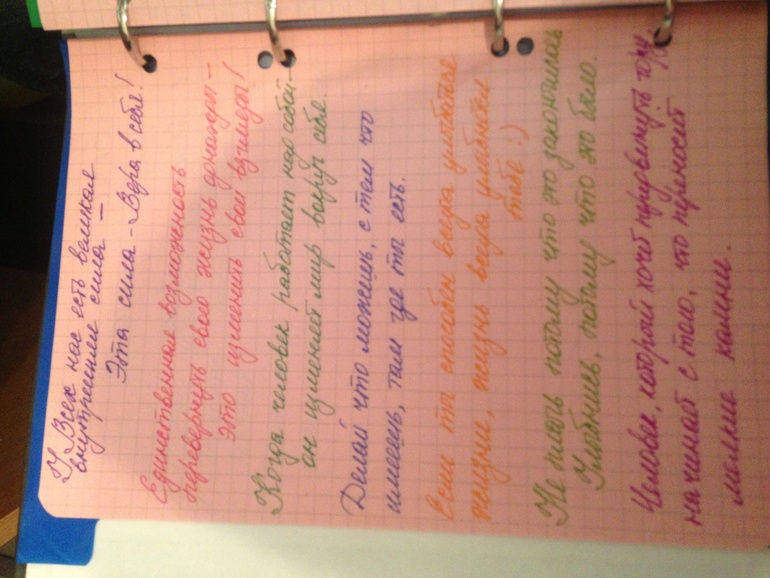 У Всех нас есть великая
внутренняя сила –
Эта сила - Вера в себя!
Единственная возможность
перевернуть свою жизнь
это изменить свои взгляды!
Когда человек работает над собой –
он изменяет мир вокруг себя.
Делай что можешь, с тем что
имеешь, там где ты есть.
Если ты способен вещать улыбаться
жизни, жизнь всегда улыбнётся
тебе :)
Не плачь потому что это закончилось
Улыбнись, потому что это было.
Человек, который хочет передвинуть гору,
начинает с того, что переносит
мелкие камни.